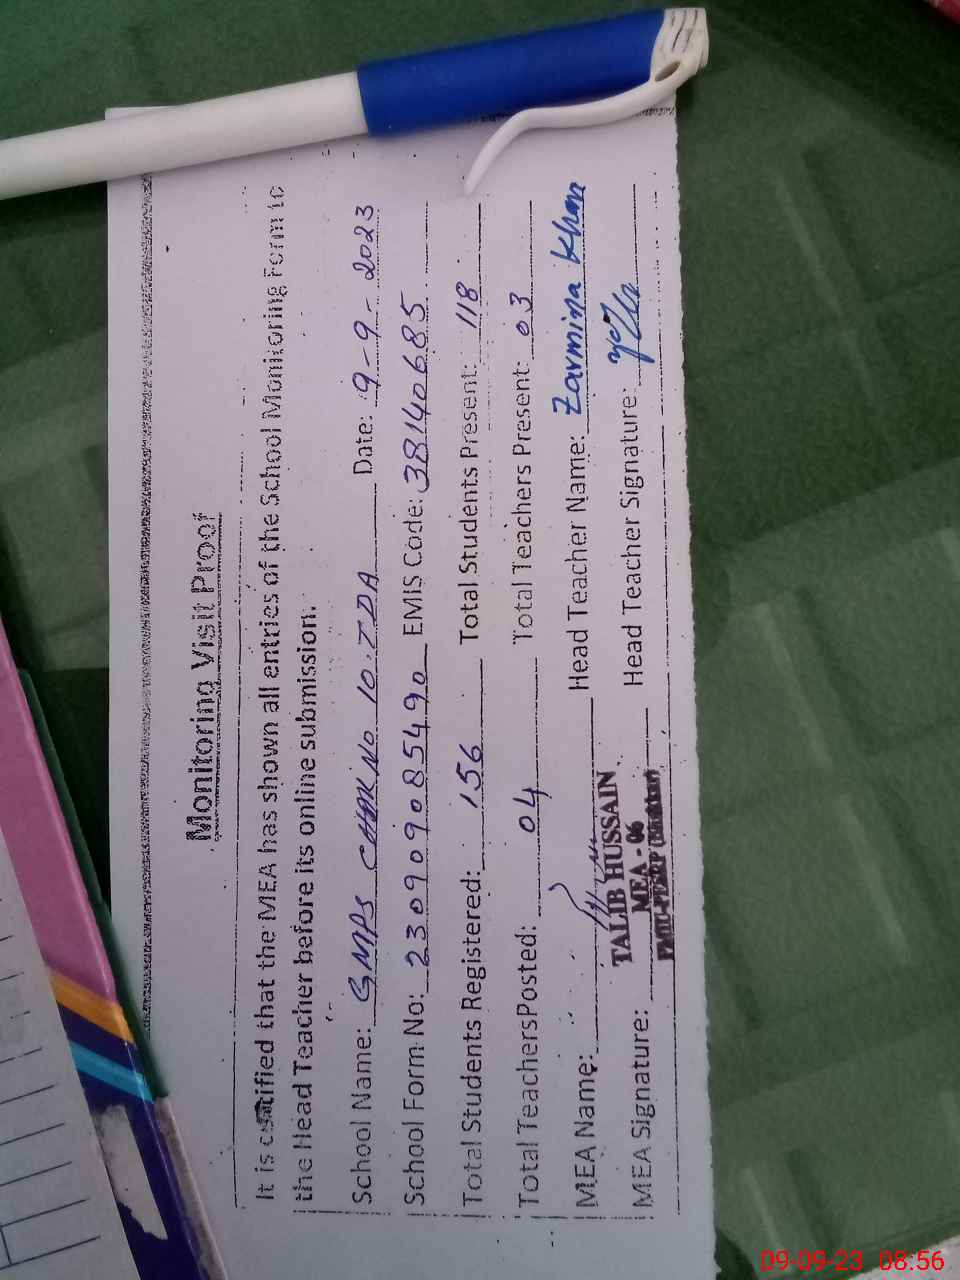 Monitoring Visit Proof
It is certified that the MEA has shown all entries of the School Monitoring Form to
the Head Teacher before its online submission.
School Name: GMPS CHAK No 10.TDA Date: 9-9-2023
School Form No: 230909085490 EMIS Code: 38140685
Total Students Registered: 156 Total Students Present: 118
Total Teachers Posted: 04 Total Teachers Present: 03
MEA Name: Head Teacher Name: Zarmina Khan
TALIB HUSSAIN
MEA - 06
MEA Signature: Head Teacher Signature:
09-09-23 08:56